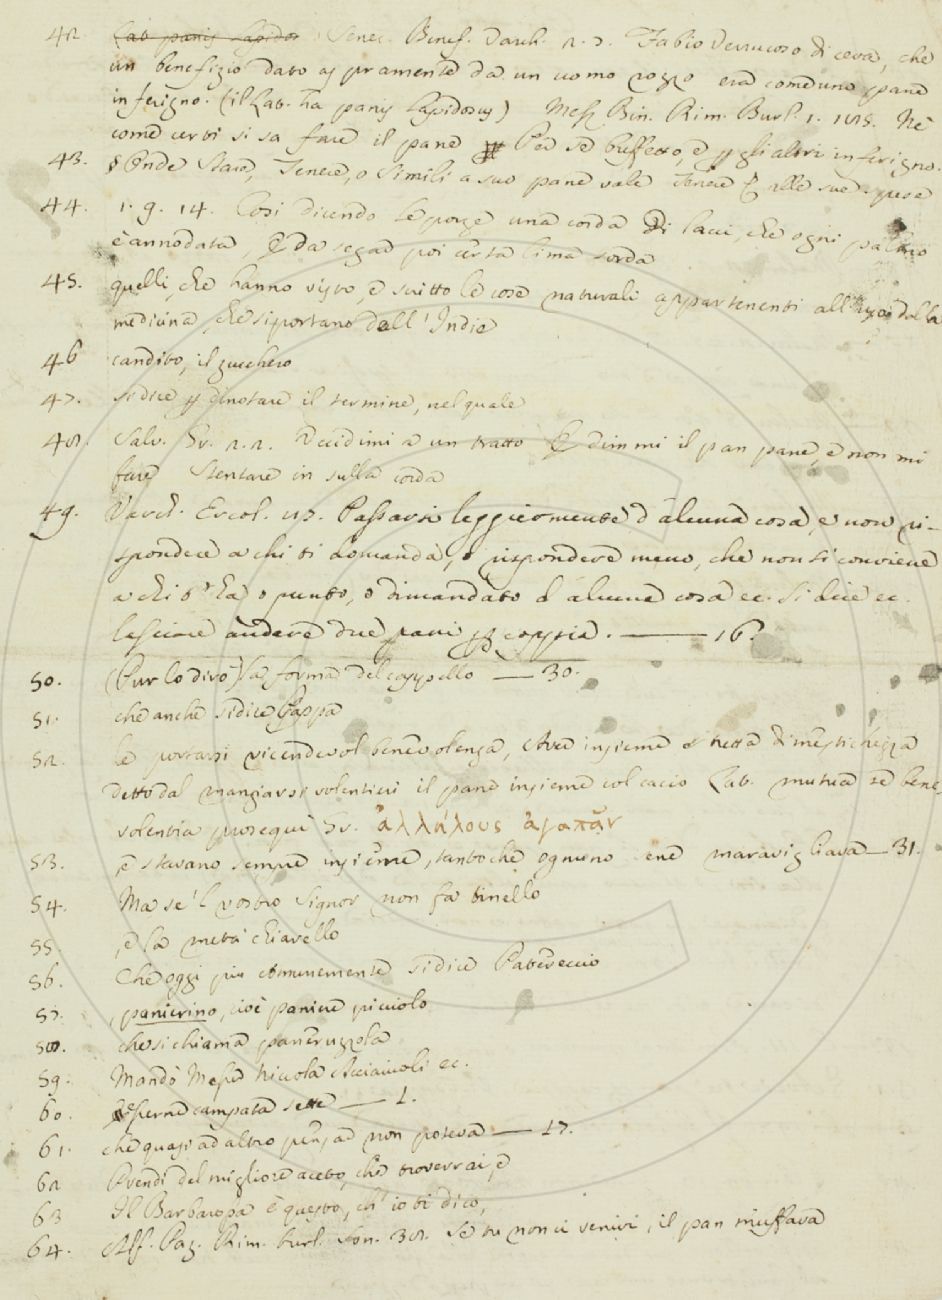 42. Lat. panis lapidos Senec. Benef. Varch. 2. 7. Fabio Verrucoso diceva, che
un benefizio dato aspramente da un uomo rozzo era come uno pane
inferigno. (il Lat. ha panis lapidosus) Mess. Bin. Rim. Burl. 1. 185. Nè
come certi si sa fare il pane Per se buffetto, e p gli altri inferigno.
43. Onde Stare, Tenere, o simili a suo pane vale Tenere alle sue spese
44. 1. 9. 14. Così dicendo le porge una corda Di lacci, che ogni palmo
è annodata, E da segar poi certa lima sorda
45. quelli, che hanno visto, e scritto le cose naturali appartenenti all' uso dalla
medicina, che si portano dall' Indie
46 candito, il zucchero
47. si dice p dinotare il termine, nel quale
48. Salv. Gr. 2. 2. Uccidimi a un tratto dimmi il pan pane, e non mi
fare stentare in sulla corda
49. Varch. Ercol. 87. Passarsi leggiermente d'alcuna cosa, e non ri-
spondere a chi ti domanda, o rispondere meno, che non si conviene
a chi t' ha o punto, o dimandato d' alcuna cosa ec. si dice ec.
lasciare andare due pani p coppia. — 16.
50. (Pur lo dirò) la forma del cappello — 30.
51. che anche si dice Pappa
52. le portarsi vicendevol benevolenza, Aver insieme stretta dimestichezza
detto dal mangiarsi volentieri il pane insieme col cacio Lat. mutua se bene
volentia prosequi Gr. ἀλλήλους ἀγαπᾶν
53. e stavano sempre insieme, tantochè ognuno ene maravigliava — 31.
54. Ma se 'l vostro Signor non fa tinello
55. , e la metà chiavello
56. Che oggi più comunemente si dice Patereccio
57. , panierino, cioè paniere piccolo
58. che si chiama pancruzzola
59. Mandò Messer Niccola Acciaiuoli ec.
60. Esserne campata sette — 1.
61. che quasi ad altro pensar non poteva — 17.
62 Prendi del migliore aceto, che troverrai, e
63 Il Barbarossa è questo, ch' io ti dico,
64. Alf. Paz. Rim. burl. son. 38. Se tu non ci venivi, il pan muffava